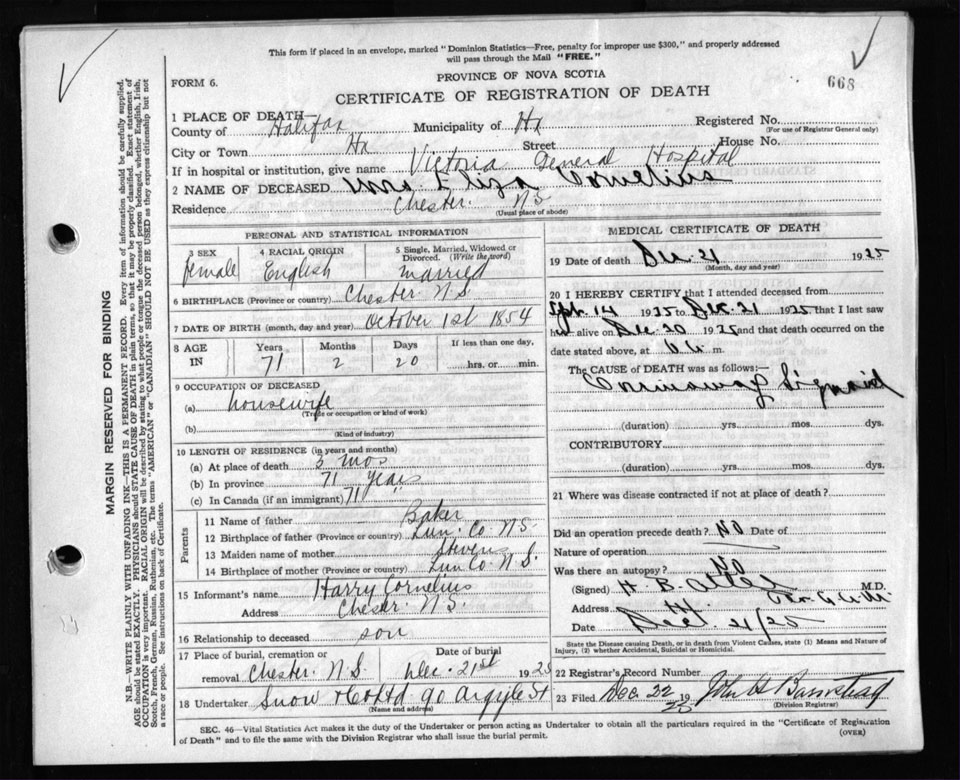 This form if placed in an envelope, marked "Dominion Statistics—Free, penalty for improper use $300," and properly addressed
will pass through the Mail "FREE."
FORM 6.
PROVINCE OF NOVA SCOTIA
668
CERTIFICATE OF REGISTRATION OF DEATH
1 PLACE OF DEATH—
County of Halifax Municipality of Hx Registered No.
(For use of Registrar General only)
City or Town Hx Street House No.
If in hospital or institution, give name Victoria General Hospital
2 NAME OF DECEASED Mrs. Eliza Cornelius
Residence Chester N.S
(Usual place of abode)
PERSONAL AND STATISTICAL INFORMATION
3 SEX female
4 RACIAL ORIGIN English
5 Single, Married, Widowed or Divorced. (Write the word) married
6 BIRTHPLACE (Province or country) Chester N.S.
7 DATE OF BIRTH (month, day and year) October 1st 1854
8 AGE IN Years 71 Months 2 Days 20 If less than one day, hrs. or min.
9 OCCUPATION OF DECEASED
(a) housewife
(Trade or occupation or kind of work)
(b)
(Kind of industry)
10 LENGTH OF RESIDENCE (in years and months)
(a) At place of death 3 mos
(b) In province 71 years
(c) In Canada (if an immigrant) 71 "
Parents
11 Name of father Baker
12 Birthplace of father (Province or country) Lun. Co N.S.
13 Maiden name of mother Stevens
14 Birthplace of mother (Province or country) Lun Co N.S.
15 Informant's name Harry Cornelius
Address Chester N.S.
16 Relationship to deceased son
17 Place of burial, cremation or removal Chester N.S Date of burial Dec. 21st 1925
18 Undertaker Snow & Co Ltd 90 Argyle St
(Name and address)
MEDICAL CERTIFICATE OF DEATH
19 Date of death Dec. 21 1925
(Month, day and year)
20 I HEREBY CERTIFY that I attended deceased from
Sept. 14 1925 to Dec. 21 1925 that I last saw
her alive on Dec 20 1925 and that death occurred on
date stated above, at m.
The CAUSE OF DEATH was as follows:—
Carcinoma of Sigmoid
(duration) yrs. mos. dys.
CONTRIBUTORY
(duration) yrs. mos. dys.
21 Where was disease contracted if not at place of death?
Did an operation precede death? No Date of
Nature of operation
Was there an autopsy? No
(Signed) H. B. M.D.
Address
Date 21/25
State the Disease causing Death, or in death from Violent Causes, state (1) Means and Nature of
Injury, (2) whether Accidental, Suicidal or Homicidal.
22 Registrar's Record Number
23 Filed Dec. 22 1925 John
(Division Registrar)
SEC. 46—Vital Statistics Act makes it the duty of the Undertaker or person acting as Undertaker to obtain all the particulars required in the "Certificate of Registration
of Death" and to file the same with the Division Registrar who shall issue the burial permit.
(OVER)
MARGIN RESERVED FOR BINDING
N.B.—WRITE PLAINLY WITH UNFADING INK—THIS IS A PERMANENT RECORD. Every item of information should be carefully supplied.
AGE should be stated EXACTLY. PHYSICIANS should STATE CAUSE OF DEATH in plain terms, so that it may be properly classified. Exact statement of
OCCUPATION is very important. RACIAL ORIGIN will be described by stating to what people or tongue the deceased person belonged, whether English, Irish,
Scotch, French, German, Russian, Ruthenian, etc. The terms "AMERICAN" or "CANADIAN" SHOULD NOT BE USED as they express citizenship but not
a race or people. See instructions on back of Certificate.